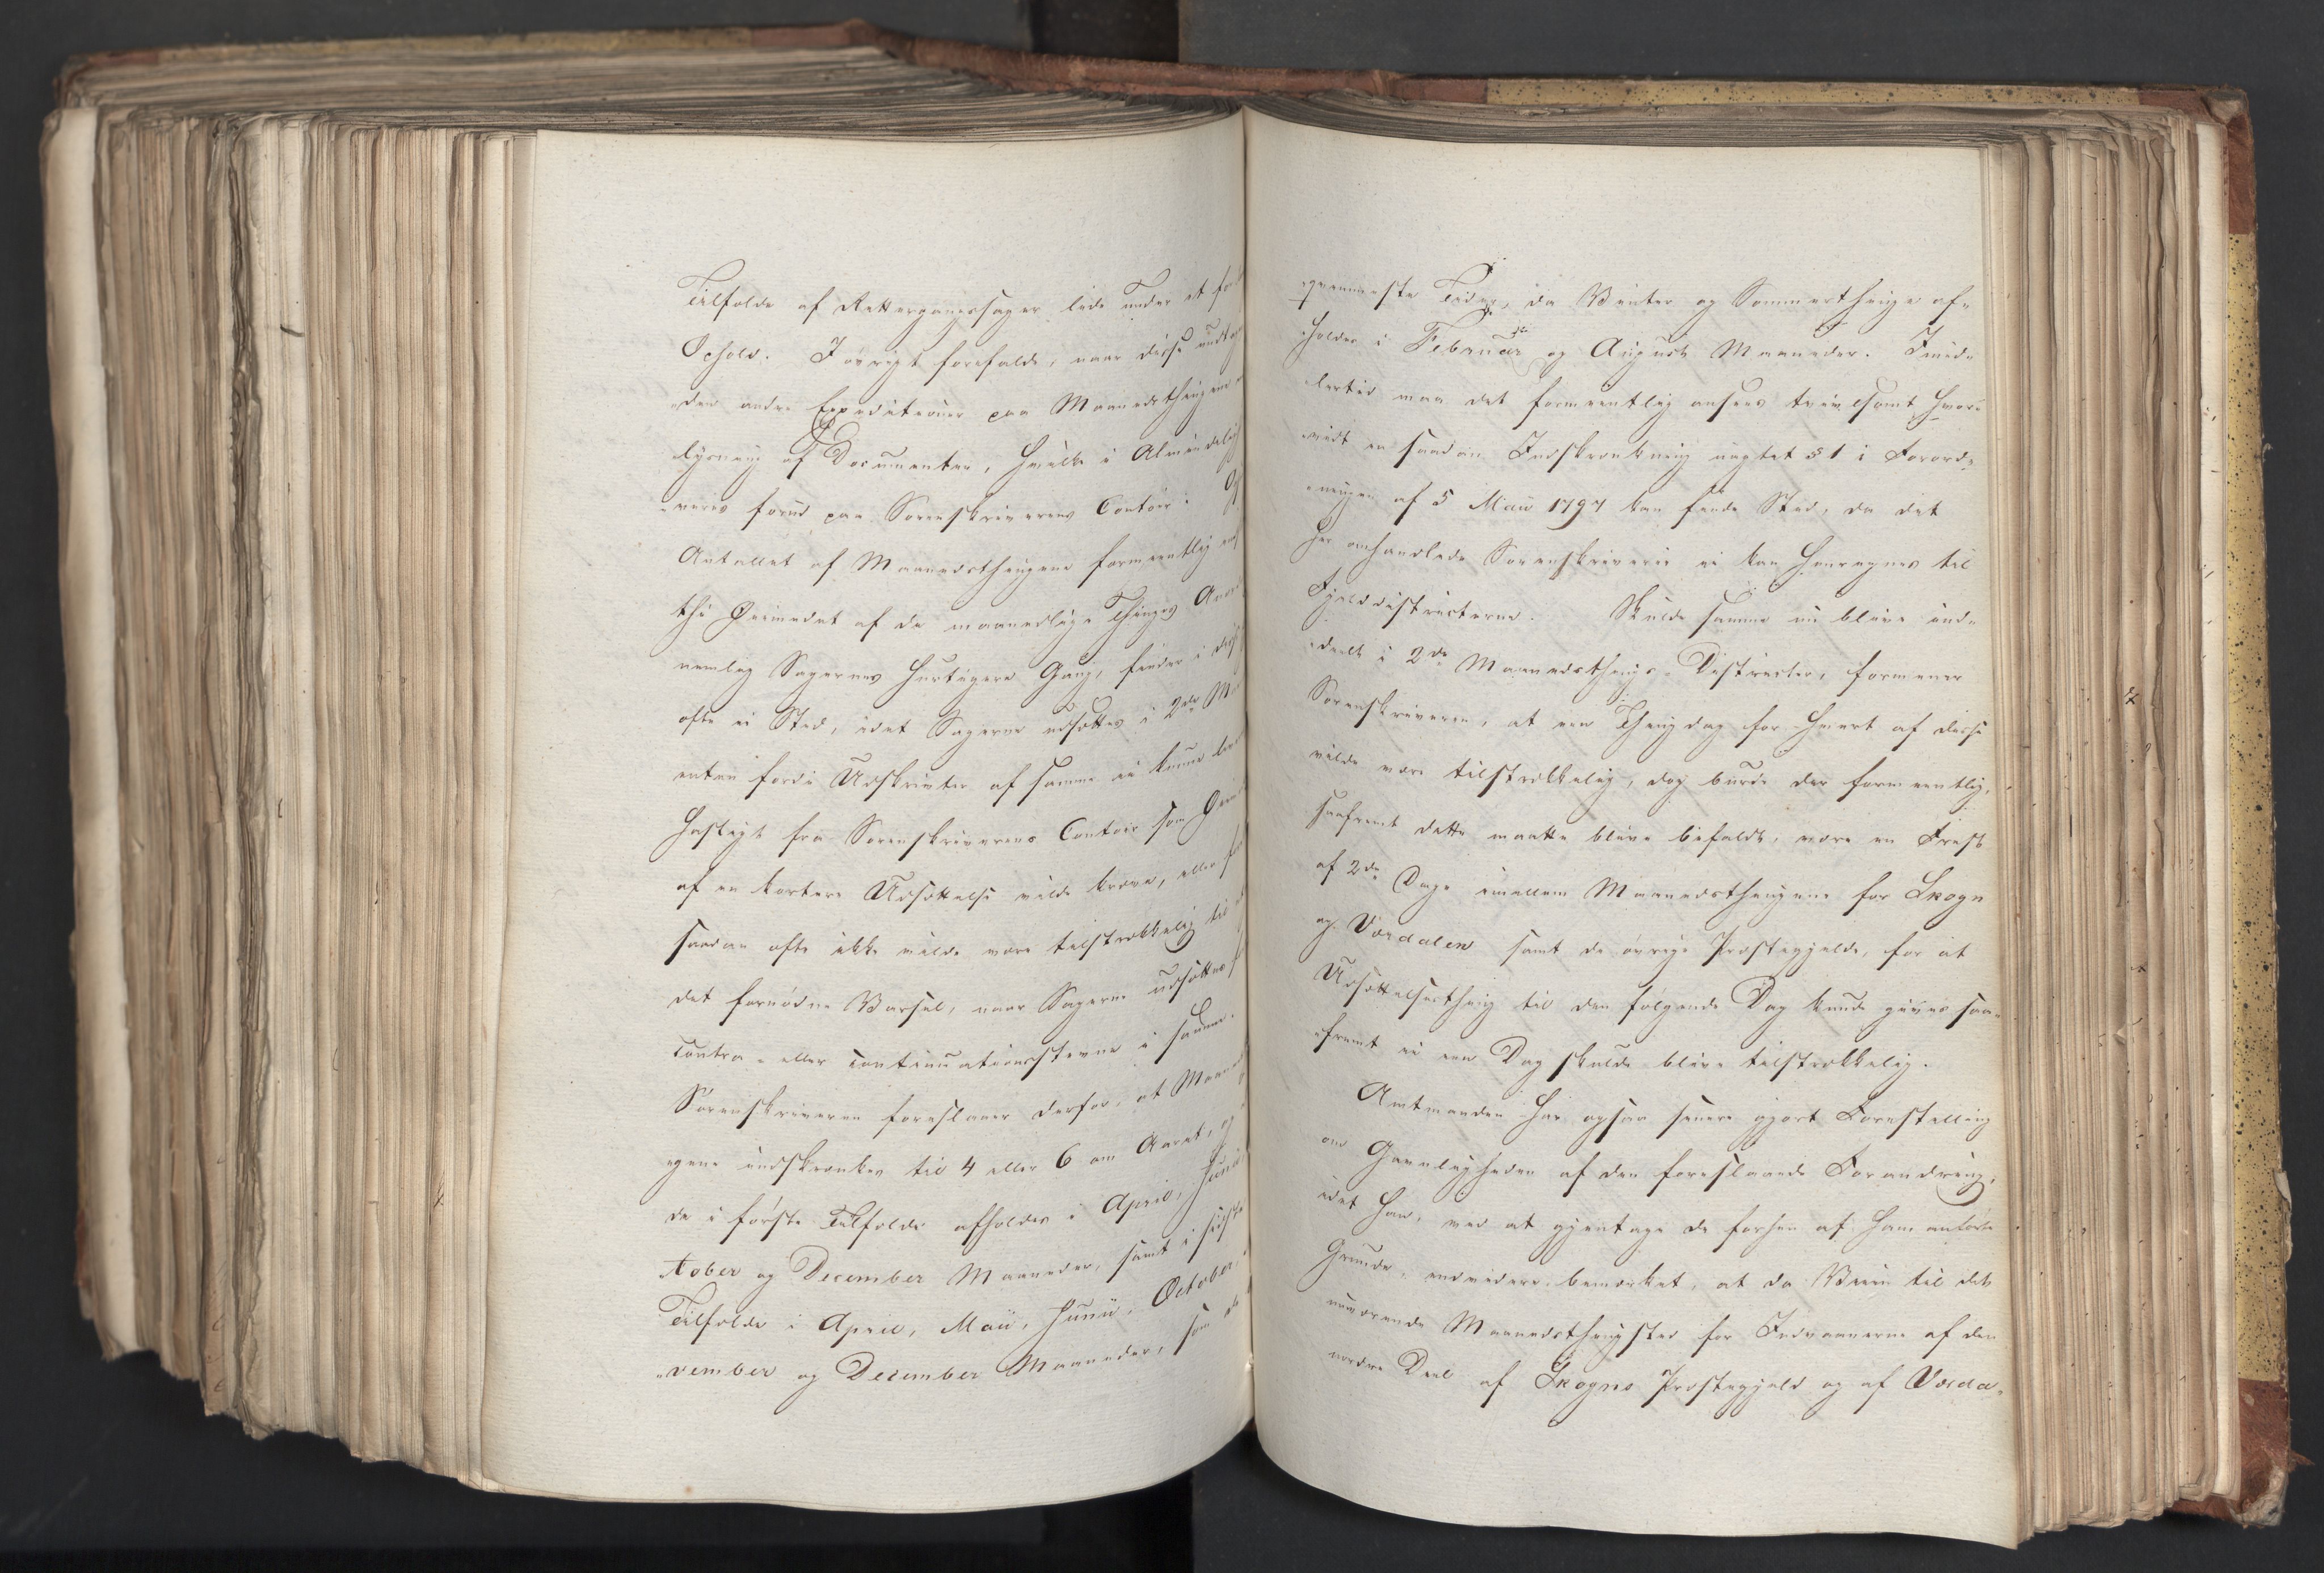 Tilfælde af Rettergangssager lide under et
Ophold. I øvrigt forefalde, naar disse
-den andre Expeditioner paa Maanedsthingene
lysning af Documenter, hvilke i Almindelighed
-veres forud paa Sorenskriverens Contoir.
Antallet af Maanedsthingene formeentlig
thi Øiemedet af de maanedlige Thinges
nemlig Sagernes hurtigere Gang, finder i
ofte ei Sted, idet Sagerne udsættes i 2de
enten fordi Udskrivter af samme ei kunne
hastigt fra Sorenskriverens Contoir som
af en kortere Udsættelse vilde kræve, eller
saadan ofte ikke vilde være tilstrækkelig til
det fornødne Varsel, naar Sagerne udsættes
Contra- eller Continuationsstevne i samme.
Sorenskriveren foreslaaer derfor, at
-gene indskrænkes til 4 eller 6 om Aaret, og
de i første Tilfælde afholdes i April, Junii
-tober og December Maaneder, samt i sidste
Tilfælde i April, Maii, Junii, October,
-vember og December Maaneder, som de
-qvemmeste Tider, da Vinter og Sommerthinge af-
holdes i Februar og August Maaneder. Imid-
-lertid maa det formeentlig ansees tvivlsomt hvor-
-vidt en saadan Indskrænkning uagtet § 1 i Forord-
-ningen af 5 Maii 1797 kan finde Sted, da det
her omhandlede Sorenskriverie ei kan henregnes til
Fjelddistricterne. Skulde samme nu blive ind-
-deelt i 2de Maanedsthings-Districter, formener
Sorenskriveren, at een Thingdag for hvert af disse
vilde være tilstrækkelig, dog burde der formeentlig,
saafremt dette maatte blive befalet, være en Frist
af 2de Dage imellem Maanedsthingene for Skogn
og Værdalen samt de øvrige Præstegjelde, for at
Udsættelsesthing til den følgende Dag kunde gives saa-
-fremt ei een Dag skulde blive tilstrækkelig.
Amtmanden har ogsaa senere gjort Forestilling
om Gavnligheden af den foreslaaede Forandring,
idet han, ved at gjentage de forhen af ham anførte
Grunde, endvidere bemærket, at da Veien til det
nuværende Maanedsthingsted for Indvaanerne af den
nordre Deel af Skogns Præstegjeld og af Værda-